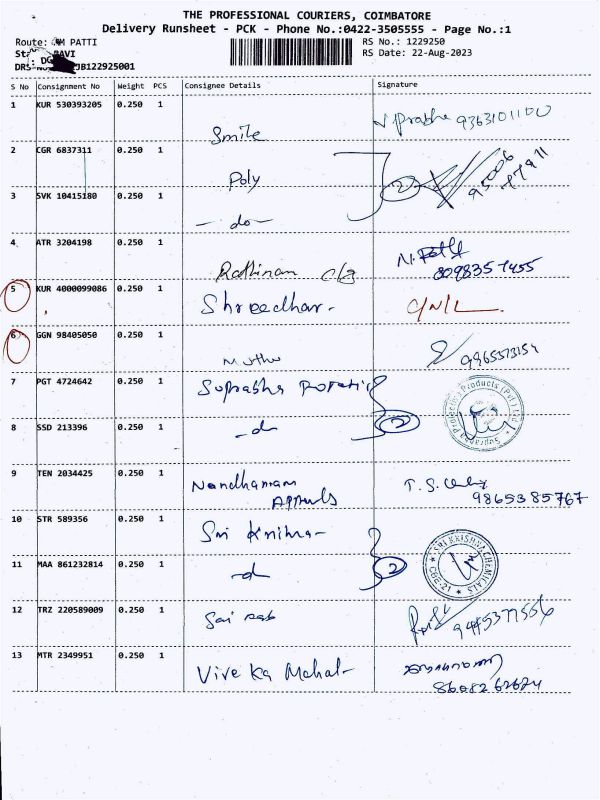 THE PROFESSIONAL COURIERS, COIMBATORE
Delivery Runsheet - PCK - Phone No.:0422-3505555 - Page No.:1
Route: PATTI
RS No.: 1229250
RS Date: 22-Aug-2023
JB122925001
S No Consignment No Weight PCS Consignee Details Signature
1 KUR 530393205 0.250 1 Smile 9363101100
2 CGR 6837311 0.250 1 Poly 2 95006 77911
3 SVK 10415180 0.250 1 -do-
4 ATR 3204198 0.250 1 Rathinam 8098357455
5 KUR 4000099086 0.250 1 Shreedhar-
6 GGN 98405050 0.250 1 Muthu
7 PGT 4724642 0.250 1 Suprabha
8 SSD 213396 0.250 1 -do- 2
9 TEN 2034425 0.250 1 Nandhanam T.S. 9865385767
10 STR 589356 0.250 1 Sri Krishna-
11 MAA 861232814 0.250 1 2
SRI KRISHNA CHEMICALS
12 TRZ 220589009 0.250 1 Sai 9445377556
13 MTR 2349951 0.250 1 Viveka Mahal- 8608262624